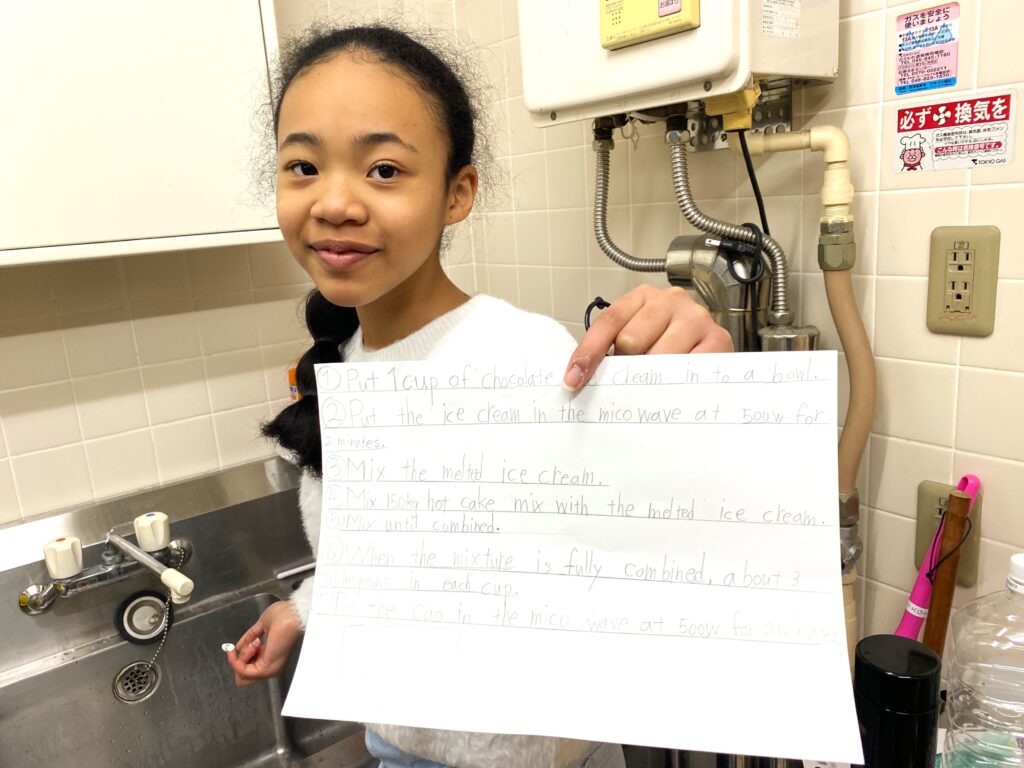 お湯はり
ガスを安全に
使いましょう
13A
必ず換気を
TOKYO GAS
① Put 1 cup of chocolate cream in to a bowl.
② Put the ice cream in the mico wave at 500w for
2 minutes.
③ Mix the melted ice cream.
④ Mix 150kg hot cake mix with the melted ice cream.
⑤ Mix until combined.
⑥ When the mixture is fully combined, about 3
in each cup.
the cup in the mico wave at 500W for 2 minutes